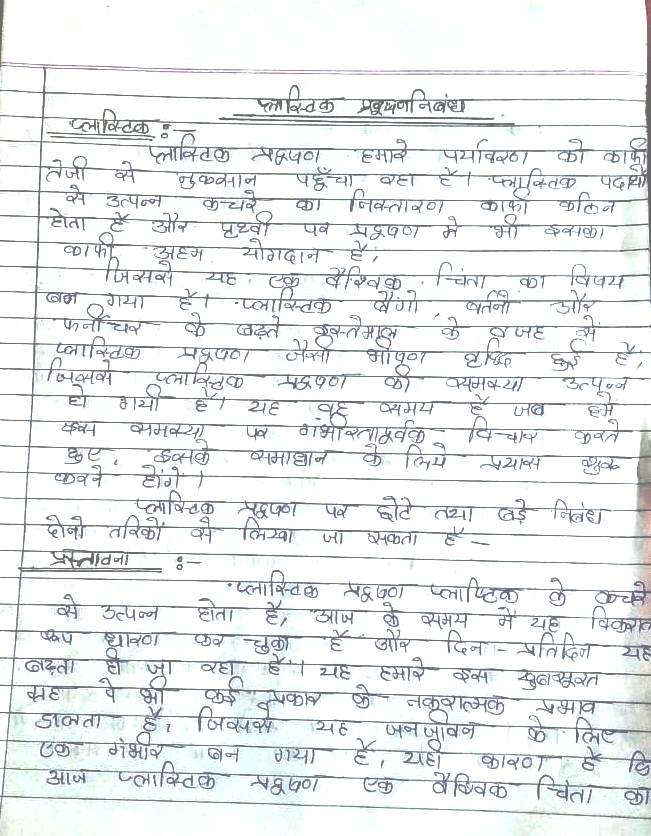 प्लास्टिक प्रदूषण निबंध
प्लास्टिक :-
प्लास्टिक प्रदूषण हमारे पर्यावरण को काफी
तेजी से नुकसान पहुँचा रहा है। प्लास्टिक पदार्थो
से उत्पन्न कचरे का निस्तारण काफी कठिन
होता है और पृथ्वी पर प्रदूषण मे भी इसका
काफी अहम योगदान है,
जिससे यह एक वैश्विक चिंता का विषय
बन गया है। प्लास्टिक बैगो, बर्तनो और
फर्नीचर के बढ़ते इस्तेमाल के वजह से
प्लास्टिक प्रदूषण जैसी भीषण वृद्धि हुई है,
जिससे प्लास्टिक प्रदूषण की समस्या उत्पन्न
हो गयी है। यह वह समय है जब हमे
इस समस्या पर गंभीरतापूर्वक विचार करते
हुए, इसके समाधान के लिये प्रयास शुरू
करने होंगे।
प्लास्टिक प्रदूषण पर छोटे तथा बड़े निबंध
दोनो तरिकों से लिखा जा सकता है -
प्रस्तावना :-
प्लास्टिक प्रदूषण प्लाष्टिक के कचरे
से उत्पन्न होता है, आज के समय में यह विकराल
रूप धारण कर चुका है और दिन - प्रतिदिन यह
बढ़ता ही जा रहा है। यह हमारे इस खुबसूरत
ग्रह पे भी कई प्रकार के नकरात्मक प्रभाव
डालता है, जिससे यह जनजीवन के लिए
एक गंभीर बन गया है, यही कारण है कि
आज प्लास्टिक प्रदूषण एक वैश्विक चिंता का